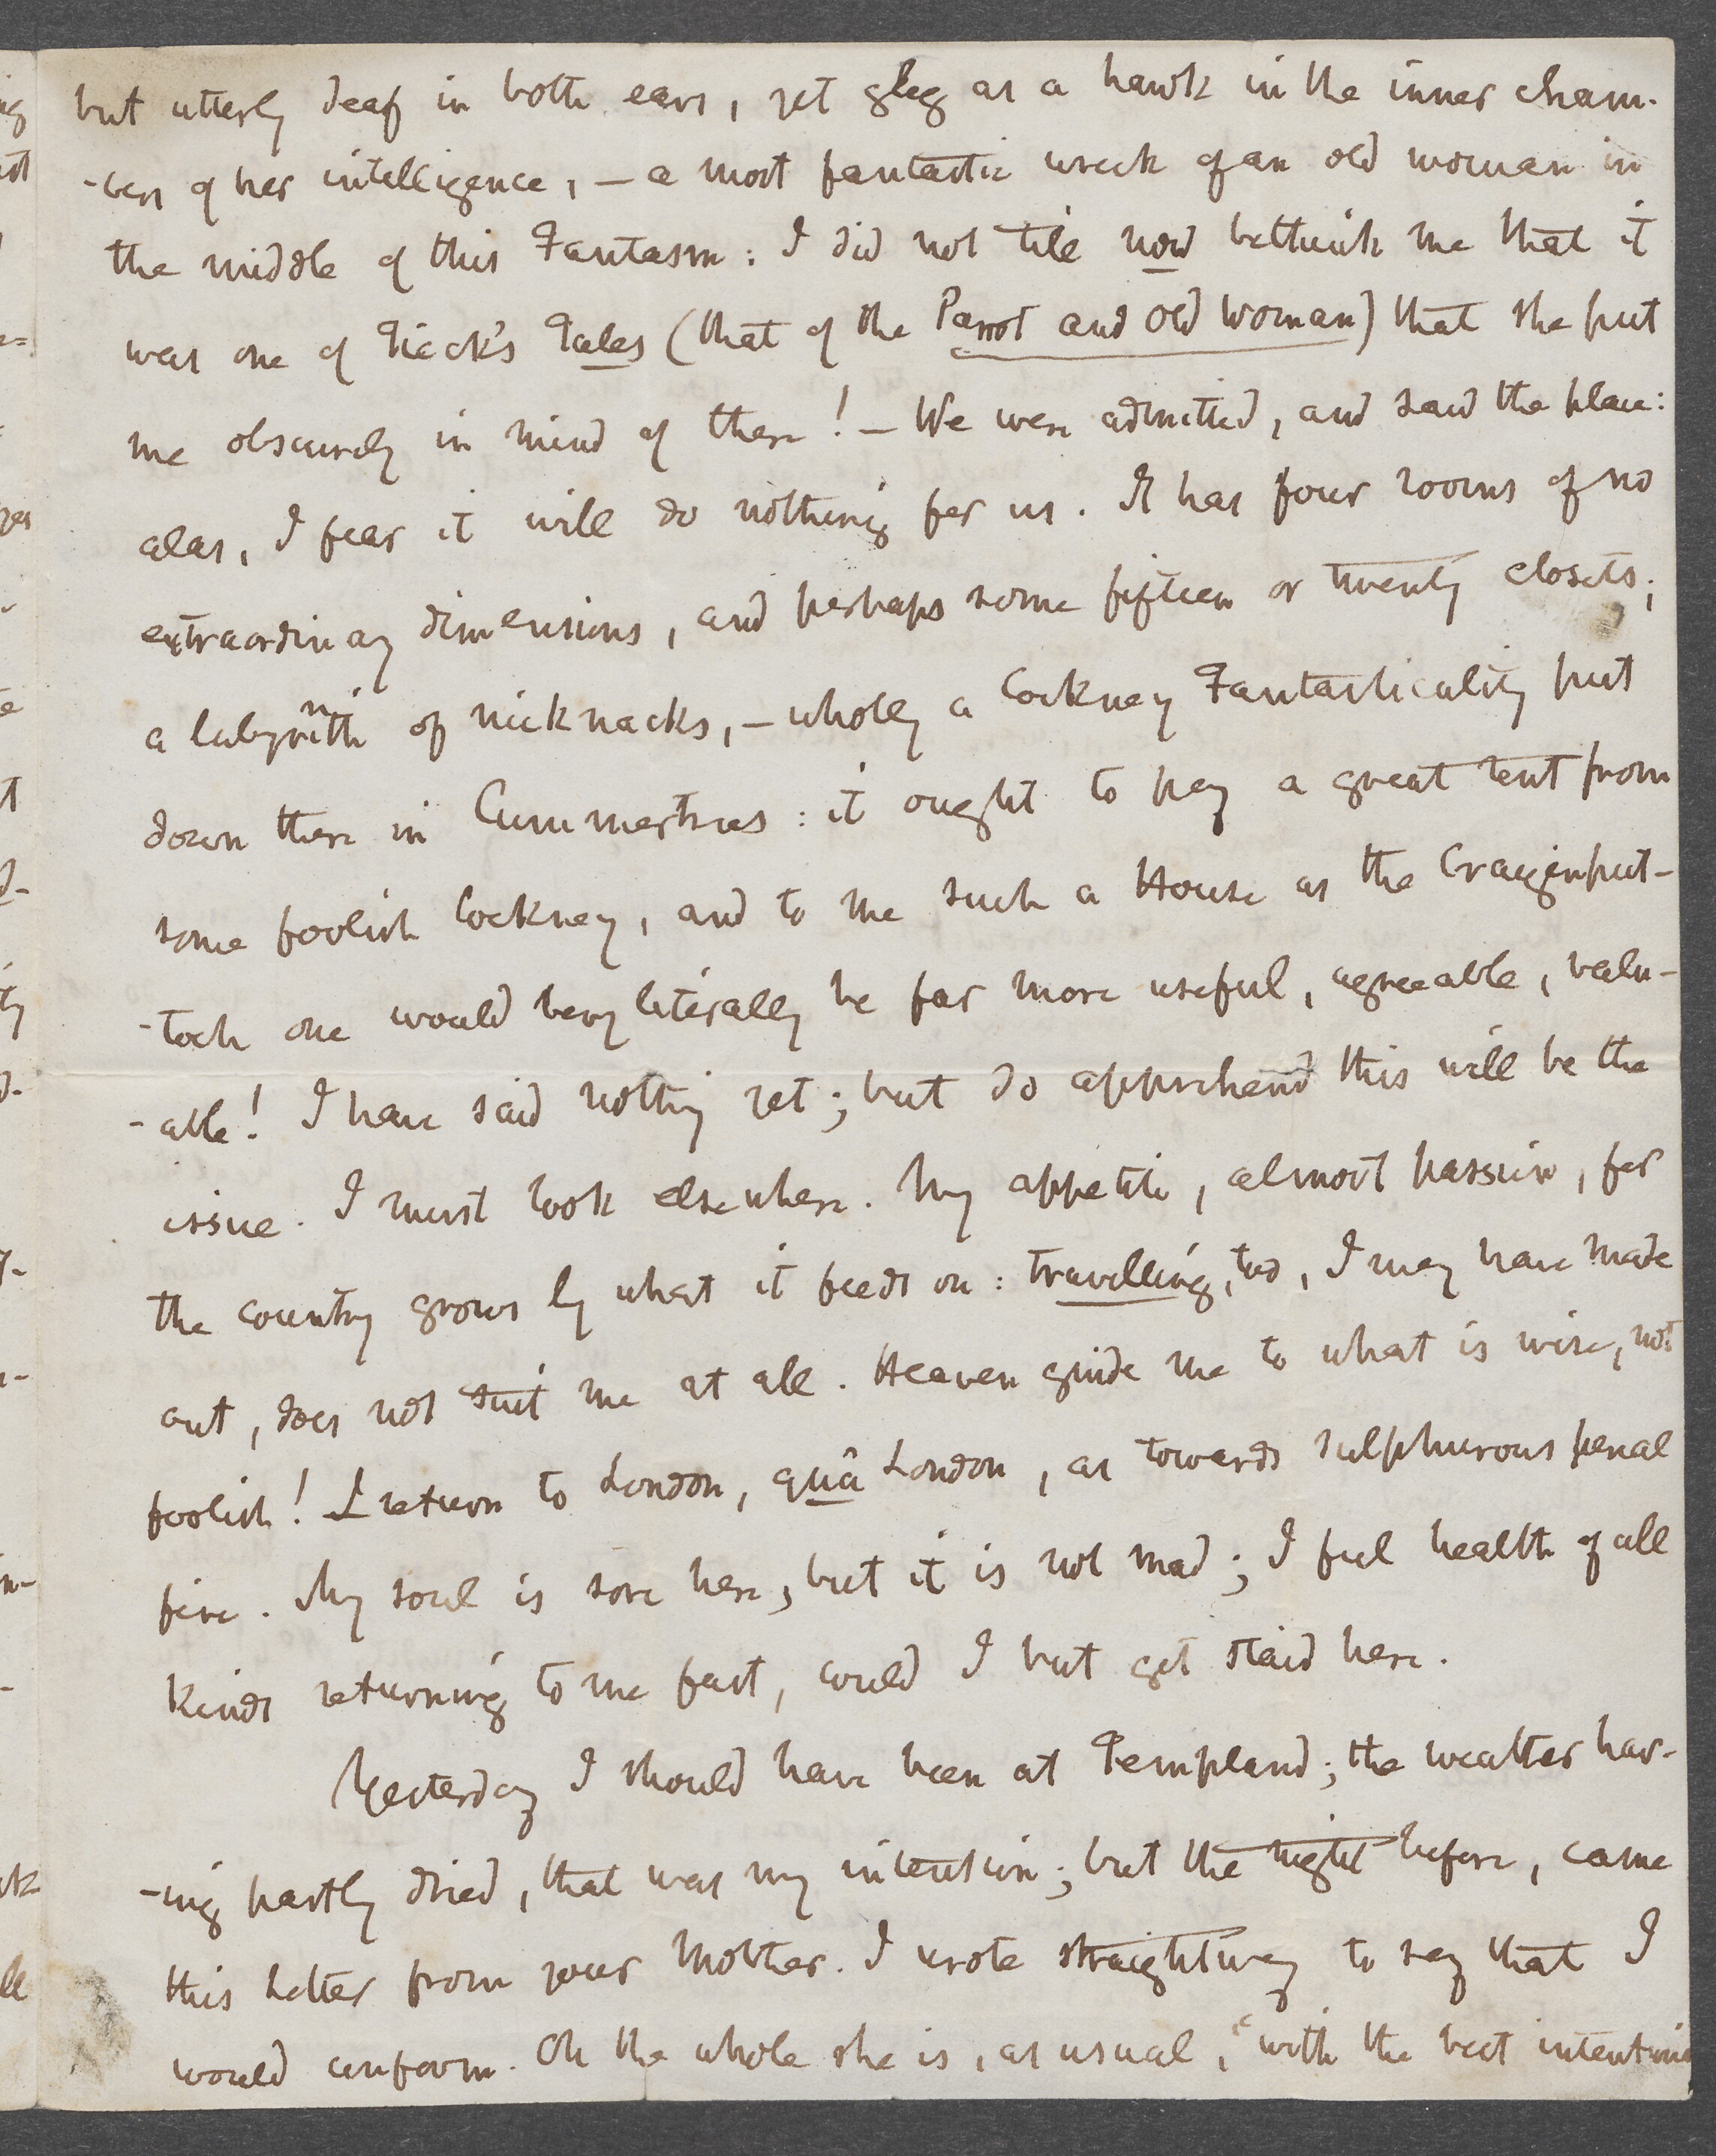 but utterly deaf in both ears, yet gleg as a hawk in the inner cham-
-bers of her intelligence, — a most fantastic wreck of an old woman in
the middle of this Fantasm: I did not till now bethink me that it
was one of Tieck's Tales (that of the Parrot and old Woman) that she put
me obscurely in mind of there! — We were admitted, and saw the place:
alas, I fear it will do nothing for us. It has four rooms of no
extraordinary dimensions, and perhaps some fifteen or twenty closets;
a labyrinth of nicknacks, — wholly a Cockney Fantasticality put
down there in Cummertrees: it ought to pay a great rent from
some foolish Cockney, and to me such a House as the Craigenput-
-toch one would very literally be far more useful, agreeable, valu-
-able! I have said nothing yet; but do apprehend this will be the
issue. I must look elsewhere. My appetite, almost passion, for
the country grows by what it feeds on: travelling, too, I may have made
out, does not suit me at all. Heaven guide me to what is wise, not
foolish! I return to London, quâ London, as towards sulphurous penal
fire. My soul is sore here, but it is not mad; I feel health of all
kinds returning to me fast, could I but get staid here.
Yesterday I should have been at Templand; the weather hav-
-ing partly dried, that was my intention; but the night before, came
this Letter from your Mother. I wrote straightway to say that I
would conform. On the whole she is, as usual, with the best intentions